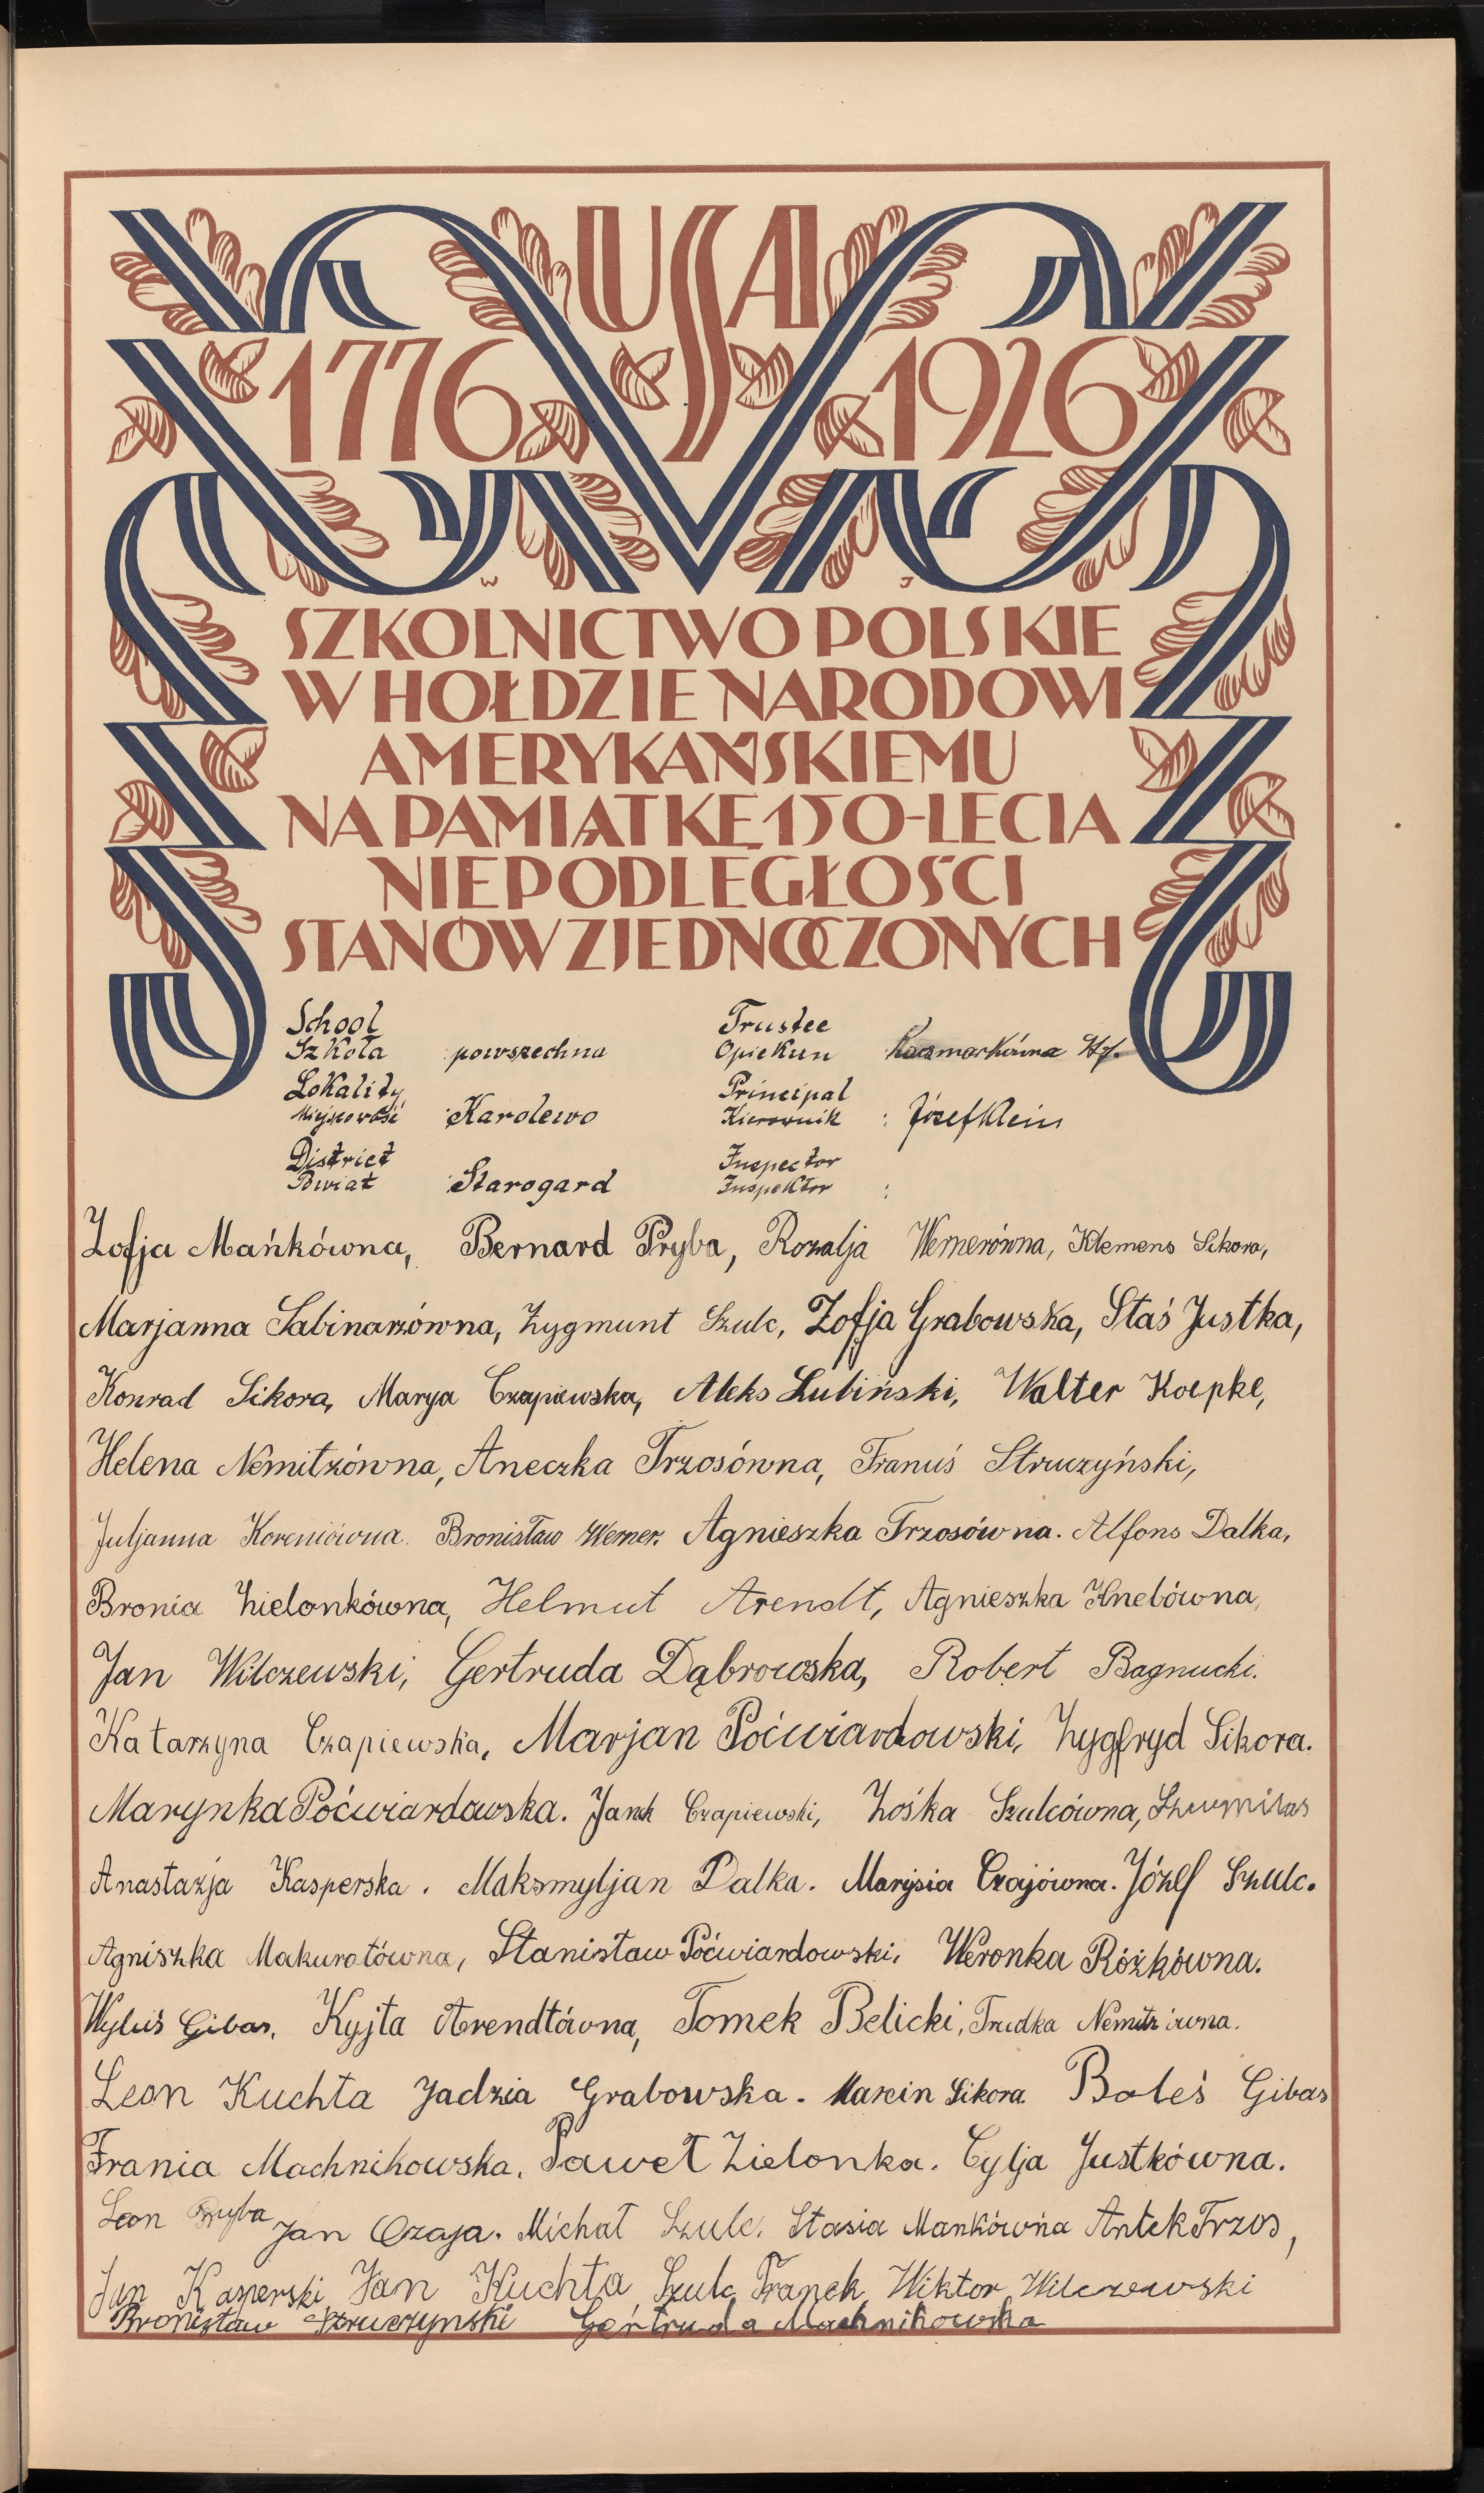 USA
1776 1926
W J
SZKOLNICTWO POLSKIE
W HOŁDZIE NARODOWI
AMERYKAŃSKIEMU
NA PAMIĄTKĘ 150-LECIA
NIEPODLEGŁOŚCI
STANÓW ZJEDNOCZONYCH
School
Szkoła powszechna
Lokality
Miejscowość : Karolewo
District
Powiat : Starogard
Trustee
Opiekun Kaczmarkówna
Principal
Kierownik : Józef Klein
Inspector
Inspektor :
Zofja Mańkówna, Bernard Pryba, Rozalja Wernerówna, Klemens Sikora,
Marjanna Sabinarzówna, Zygmunt Szulc, Zofja Grabowska, Staś Justka,
Konrad Sikora, Marya Czapiewska, Aleks Lubiński, Walter Koepke,
Helena Nemitzówna, Aneczka Trzosówna, Franuś Struczyński,
Juljanna Koreniówna. Bronisław Werner. Agnieszka Trzosówna. Alfons Dalka,
Bronia Zielonkówna, Helmut Arendt, Agnieszka Knebówna,
Jan Wilczewski, Gertruda Dąbrowska, Robert Bagnucki.
Katarzyna Czapiewska, Marjan Poćwiardowski, Zygfryd Sikora.
Marynka Poćwiardowska. Janek Czapiewski, Zośka Szulcówna,
Anastazja Kasperska. Maksmyljan Dalka. Marysia Czajówna. Józef Szulc.
Agniszka Makuratówna, Stanisław Poćwiardowski, Weronka Różkówna.
Wyluś Gibas, Kyjta Arendtówna, Tomek Belicki, Trudka Nemitzówna.
Leon Kuchta Jadzia Grabowska. Marcin Sikora. Boleś Gibas
Frania Machnikowska, Paweł Zielonka. Cylja Justkówna.
Leon Pryba Jan Czaja. Michał Szulc. Stasia Mankówna Antek Trzos,
Jan Kasperski Jan Kuchta Szulc Franek Wiktor Wilczewski
Bronisław Struczynski Gertruda Machnikowska